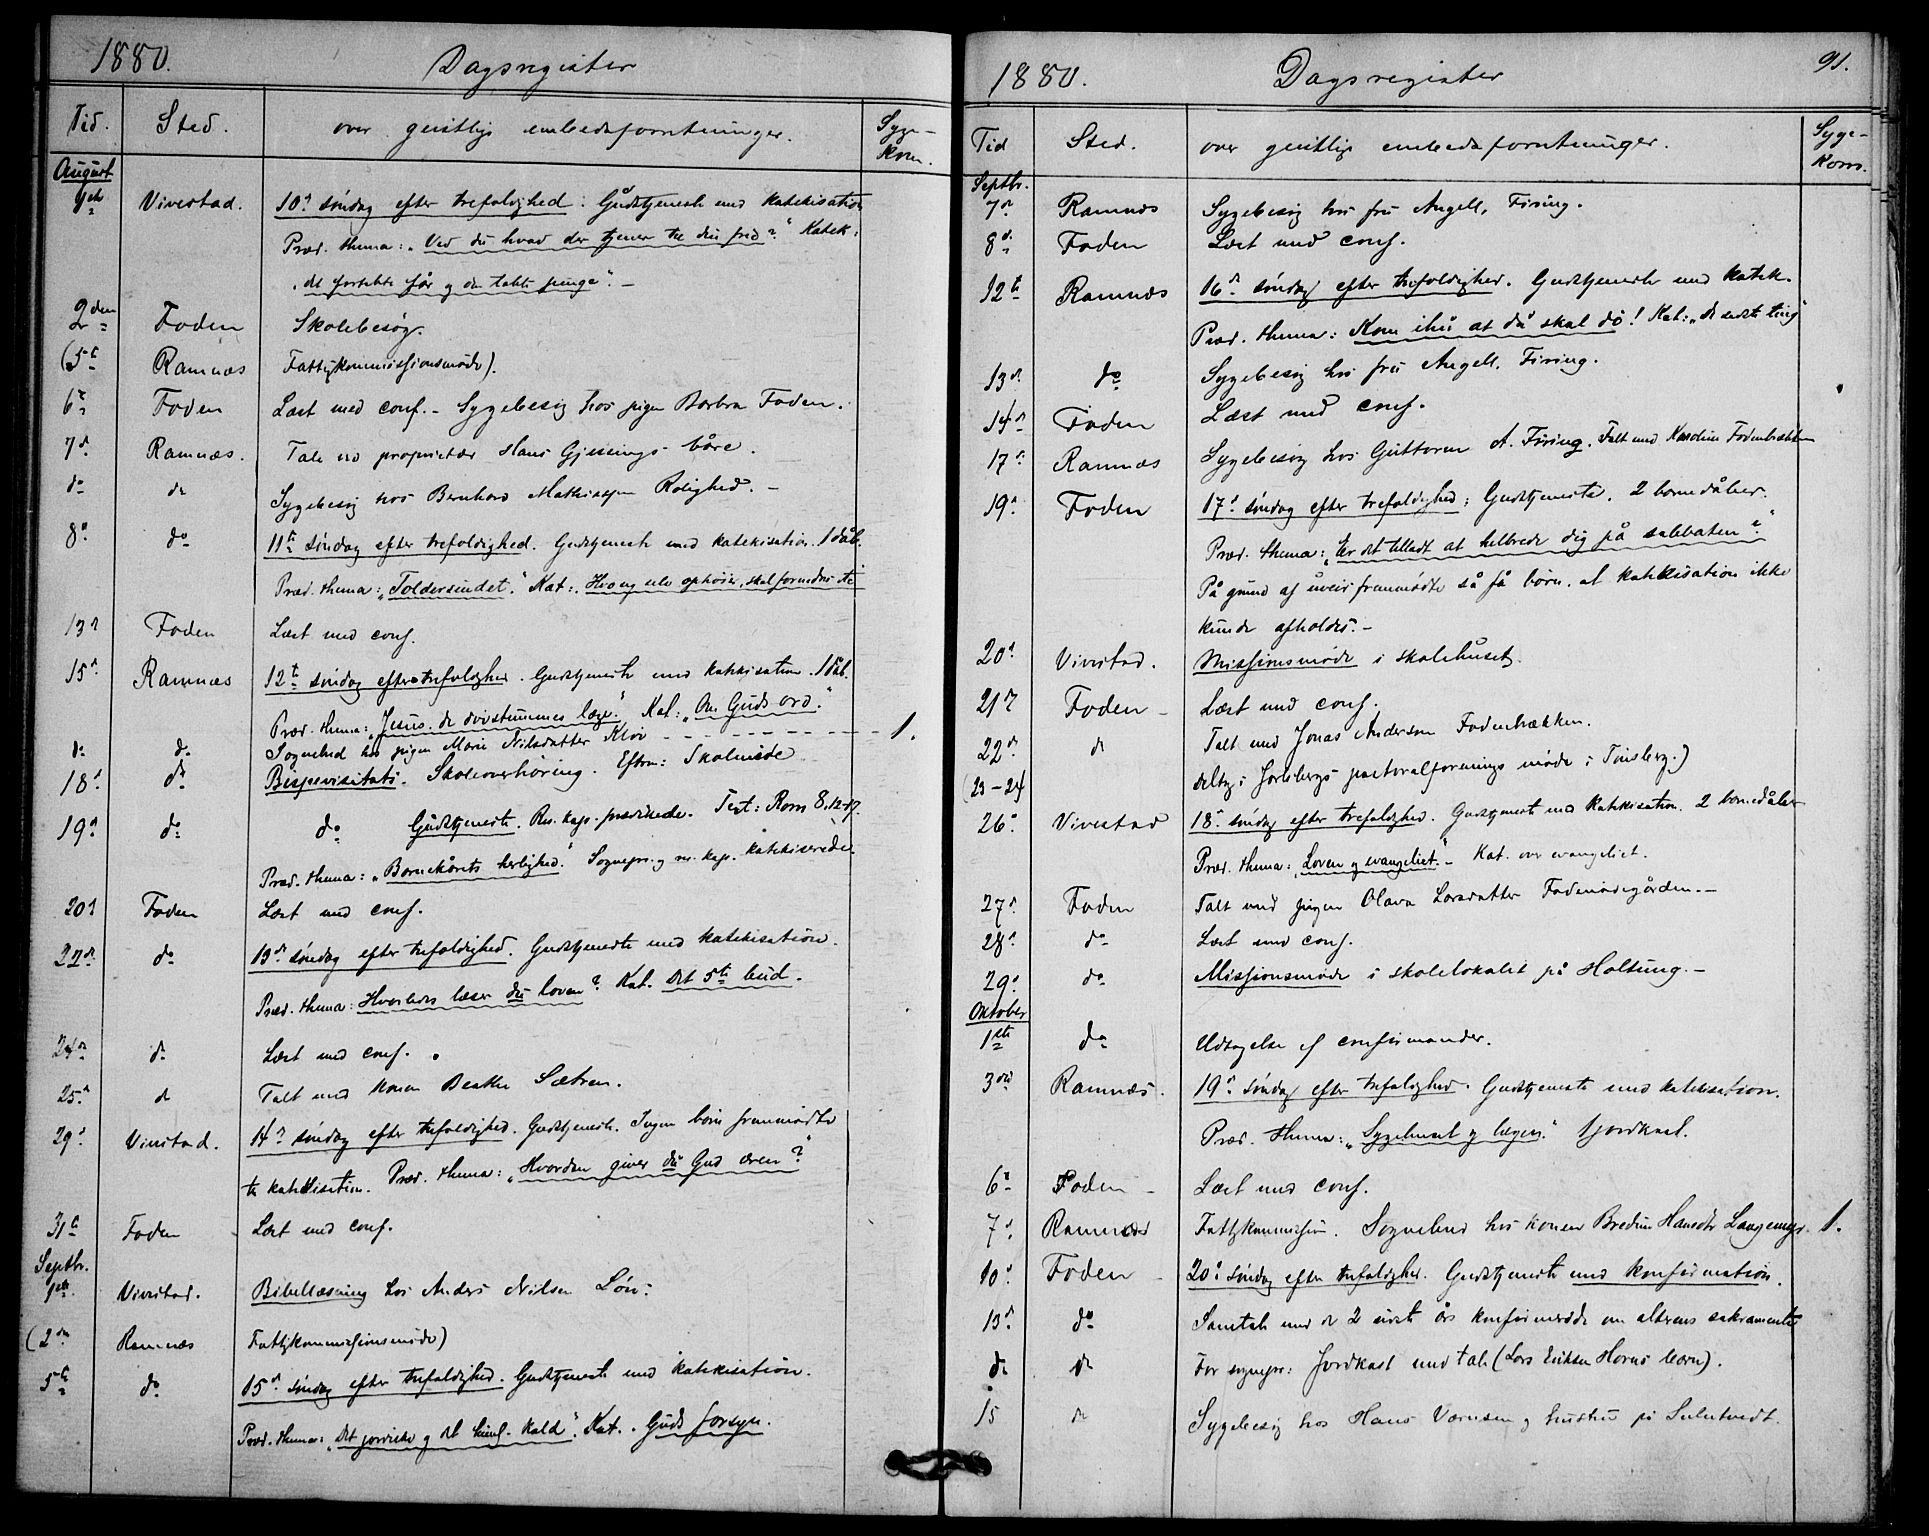 1880. Dagsregister
Tid. Sted. over geistlige embedsforretninger. Syge-
kom.
August
1ste Vivestad. 10de søndag efter trefoldighed. Gudstjeneste med katekisation
Præd. thema: "Ved du hvad der tjener til din fred?" Katek:
"det fortabte får og den tabte penge". –
2den Foden Skolebesøg.
(5te Ramnæs Fattigkommissionsmøde).
6te Foden Læst med conf. – Sygebesøg hos pigen Barbra Foden.
7de Ramnæs. Tale ved proprietær Hans Gjessings båre.
do do Sygebesøg hos Bernhard Mathiassen Rolighed. –
8de do 11te søndag efter trefoldighed. Gudstjeneste med katekisation. 1 dåb.
Præd. thema: "Toldersindet". Kat: Hvo sig selv ophøier, skal fornedres
13de Foden Læst med conf.
15de Ramnæs 12te søndag efter trefoldighed. Gudstjeneste med katekisation. 1 dåb.
Præd. thema: "Jesus de døvstummes læge". Kat: "Om Guds ord."
do do Sognebud hos pigen Marie Nilsdatter Kløv – – – – – – 1.
18de do Bispevisitats. Skoleoverhøring. Efterm: Skolemøde
19de do do Gudstjeneste. Res. kap. prædikede. Text: Rom 8, 12-17.
Præd. thema: "Barnekårets herlighed." Sognepr. og res. kap. katekiserede.
20de Foden Læst med conf.
22de do 13de søndag efter trefoldighed. Gudstjeneste med katekisation.
Præd. thema: Hvorledes læser du loven? Kat. Det 5te bud.
24de do Læst med conf.
25de do Talt med konen Beathe Sætren.
29de Vivestad. 14de søndag efter trefoldighed. Gudstjeneste. Ingen børn fremmødte
til katekisation. Præd. thema: "Hvordan giver du Gud æren?"
31te Foden Læst med conf.
Septbr.
1ste Vivestad. Bibellæsning hos Anders Nilsen Løv:
(2den Ramnæs Fattigkommissionsmøde)
5te do 15de søndag efter trefoldighed. Gudstjeneste med katekisation.
Præd. thema: "Det jordiske og det himl. kald". Kat. Guds forsyn.
1880. Dagsregister 91.
Tid Sted. over geistlige embedsforretninger. Syge-
kom.
Septbr.
7de Ramnæs Sygebesøg hos fru Angell, Firing.
8de Foden Læst med conf.
12te Ramnæs 16de søndag efter trefoldighed. Gudstjeneste med katek.
Præd. thema: Kom ihu at du skal dø! Kat: "De sidste ting"
13de do Sygebesøg hos fru Angell, Firing.
14de Foden Læst med conf.
17de Ramnæs Sygebesøg hos Guttorm A. Firing. Talt med Karoline Fodenbækken
19de Foden 17de søndag efter trefoldighed: Gudstjeneste. 2 barnedåber.
Præd. thema: "Er det tilladt at helbrede dig på sabbaten?"
På grund af uveir fremmødte så få børn, at katekisation ikke
kunde afholdes. –
20de Vivestad. Missionsmøde i skolehuset.
21de Foden – Læst med conf.
22de do Talt med Jonas Anderson Fodenbækken.
(23–24 deltog i Jarlsbergs pastoralforenings møde i Tønsberg.)
26de Vivestad 18de søndag efter trefoldighed. Gudstjeneste med katekisation. 2 barnedåber
Præd. thema: "Loven og evangeliet". – Kat. over evangeliet.
27de Foden Talt med pigen Olava Larsdatter Fodenødegården. –
28de do Læst med conf.
29de do Missionsmøde i skolelokalet på Holtung. –
Oktober
1ste do Udtagelse af confirmander.
3die Ramnæs. 19de søndag efter trefoldighed. Gudstjeneste med katekisation.
Præd. thema: "Sygehuset og lægen." 1 jordkast.
6te Foden – Læst med conf.
7de Ramnæs Fattigkommission. Sognebud hos konen Bredine Hansdtr Langemyr. 1.
10de Foden – 20de søndag efter trefoldighed. Gudstjeneste med konfirmation.
13de do Samtale med de 2 sidste års konfirmerede om alterens sakramente
do do For sognepr: Jordkast med tale (Lars Eriksen Hornes barn).
15 do Sygebesøg hos Hans og hustru på